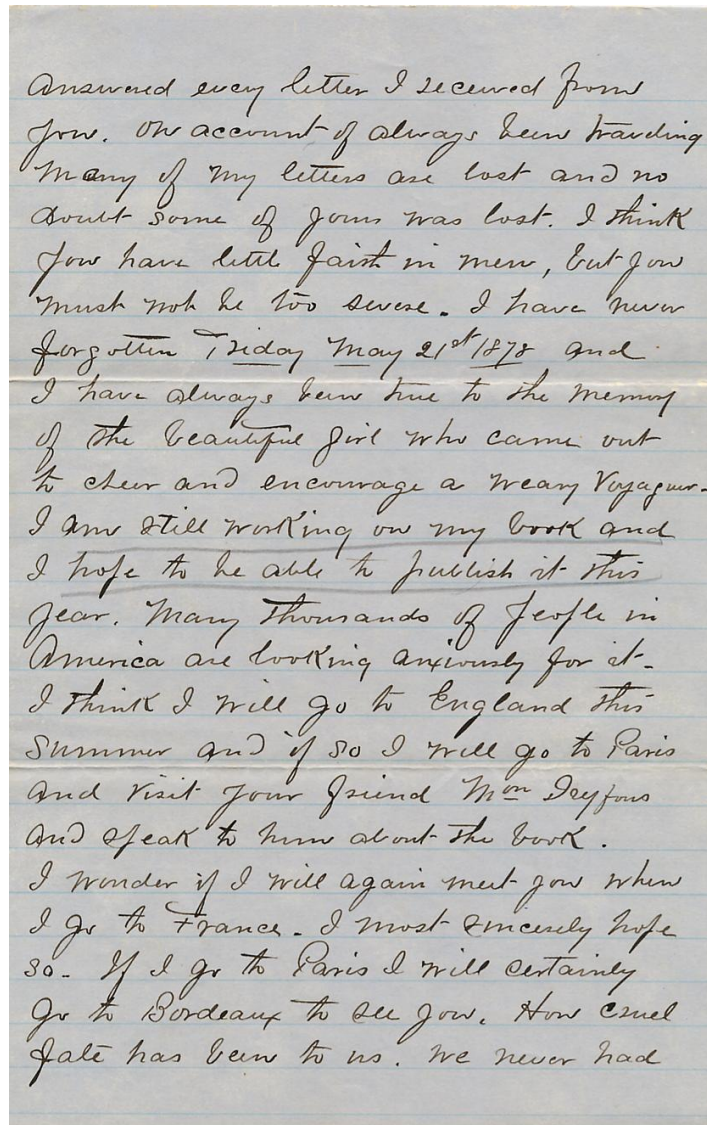 answered every letter I received from
you. On account of always been traveling
many of my letters are lost and no
doubt some of yours was lost. I think
you have little faith in men, but you
must not be too severe. I have never
forgotten Friday May 21st 1878 and
I have always been true to the memory
of the beautiful girl who came out
to cheer and encourage a weary Voyaguer.
I am still working on my book and
I hope to be able to publish it this
year. Many thousands of people in
America are looking anxiously for it.
I think I will go to England this
summer and if so I will go to Paris
and visit your friend Mon Dreyfous
and speak to him about the book.
I wonder if I will again meet you when
I go to France. I most sincerely hope
so. If I go to Paris I will certainly
go to Bordeaux to see you. How cruel
fate has been to us. We never had